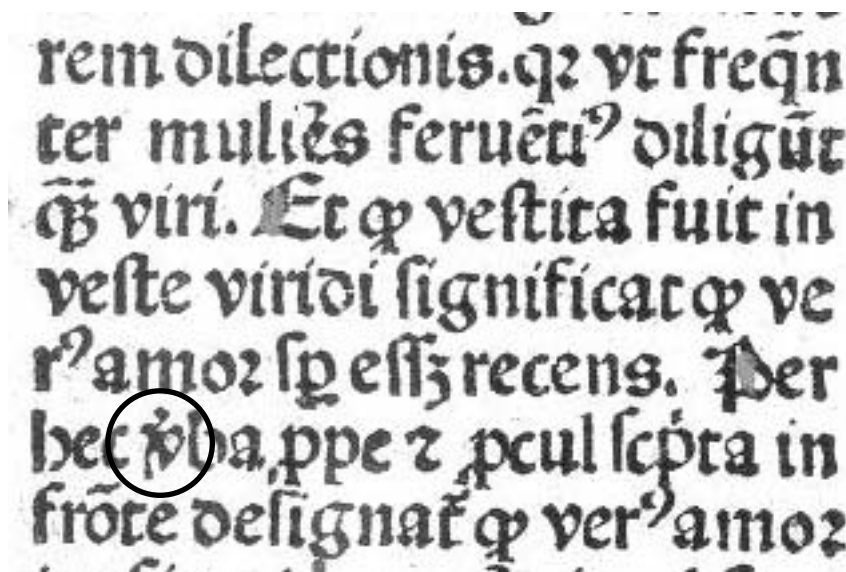 rem dilectionis.qꝛ vt freq̄n
ter muliẽs feruẽtiꝰ diligūt
qꝫ̄ viri. Et ꝙ veſtita fuit in
veſte viridi ſignificat ꝙ ve
rꝰ amoꝛ ſꝑ eſſꝫ recens. Per
hec v̓ba ꝓpe ⁊ ꝓcul ſcp̓ta in
frōte deſignat᷑ ꝙ verꝰ amoꝛ